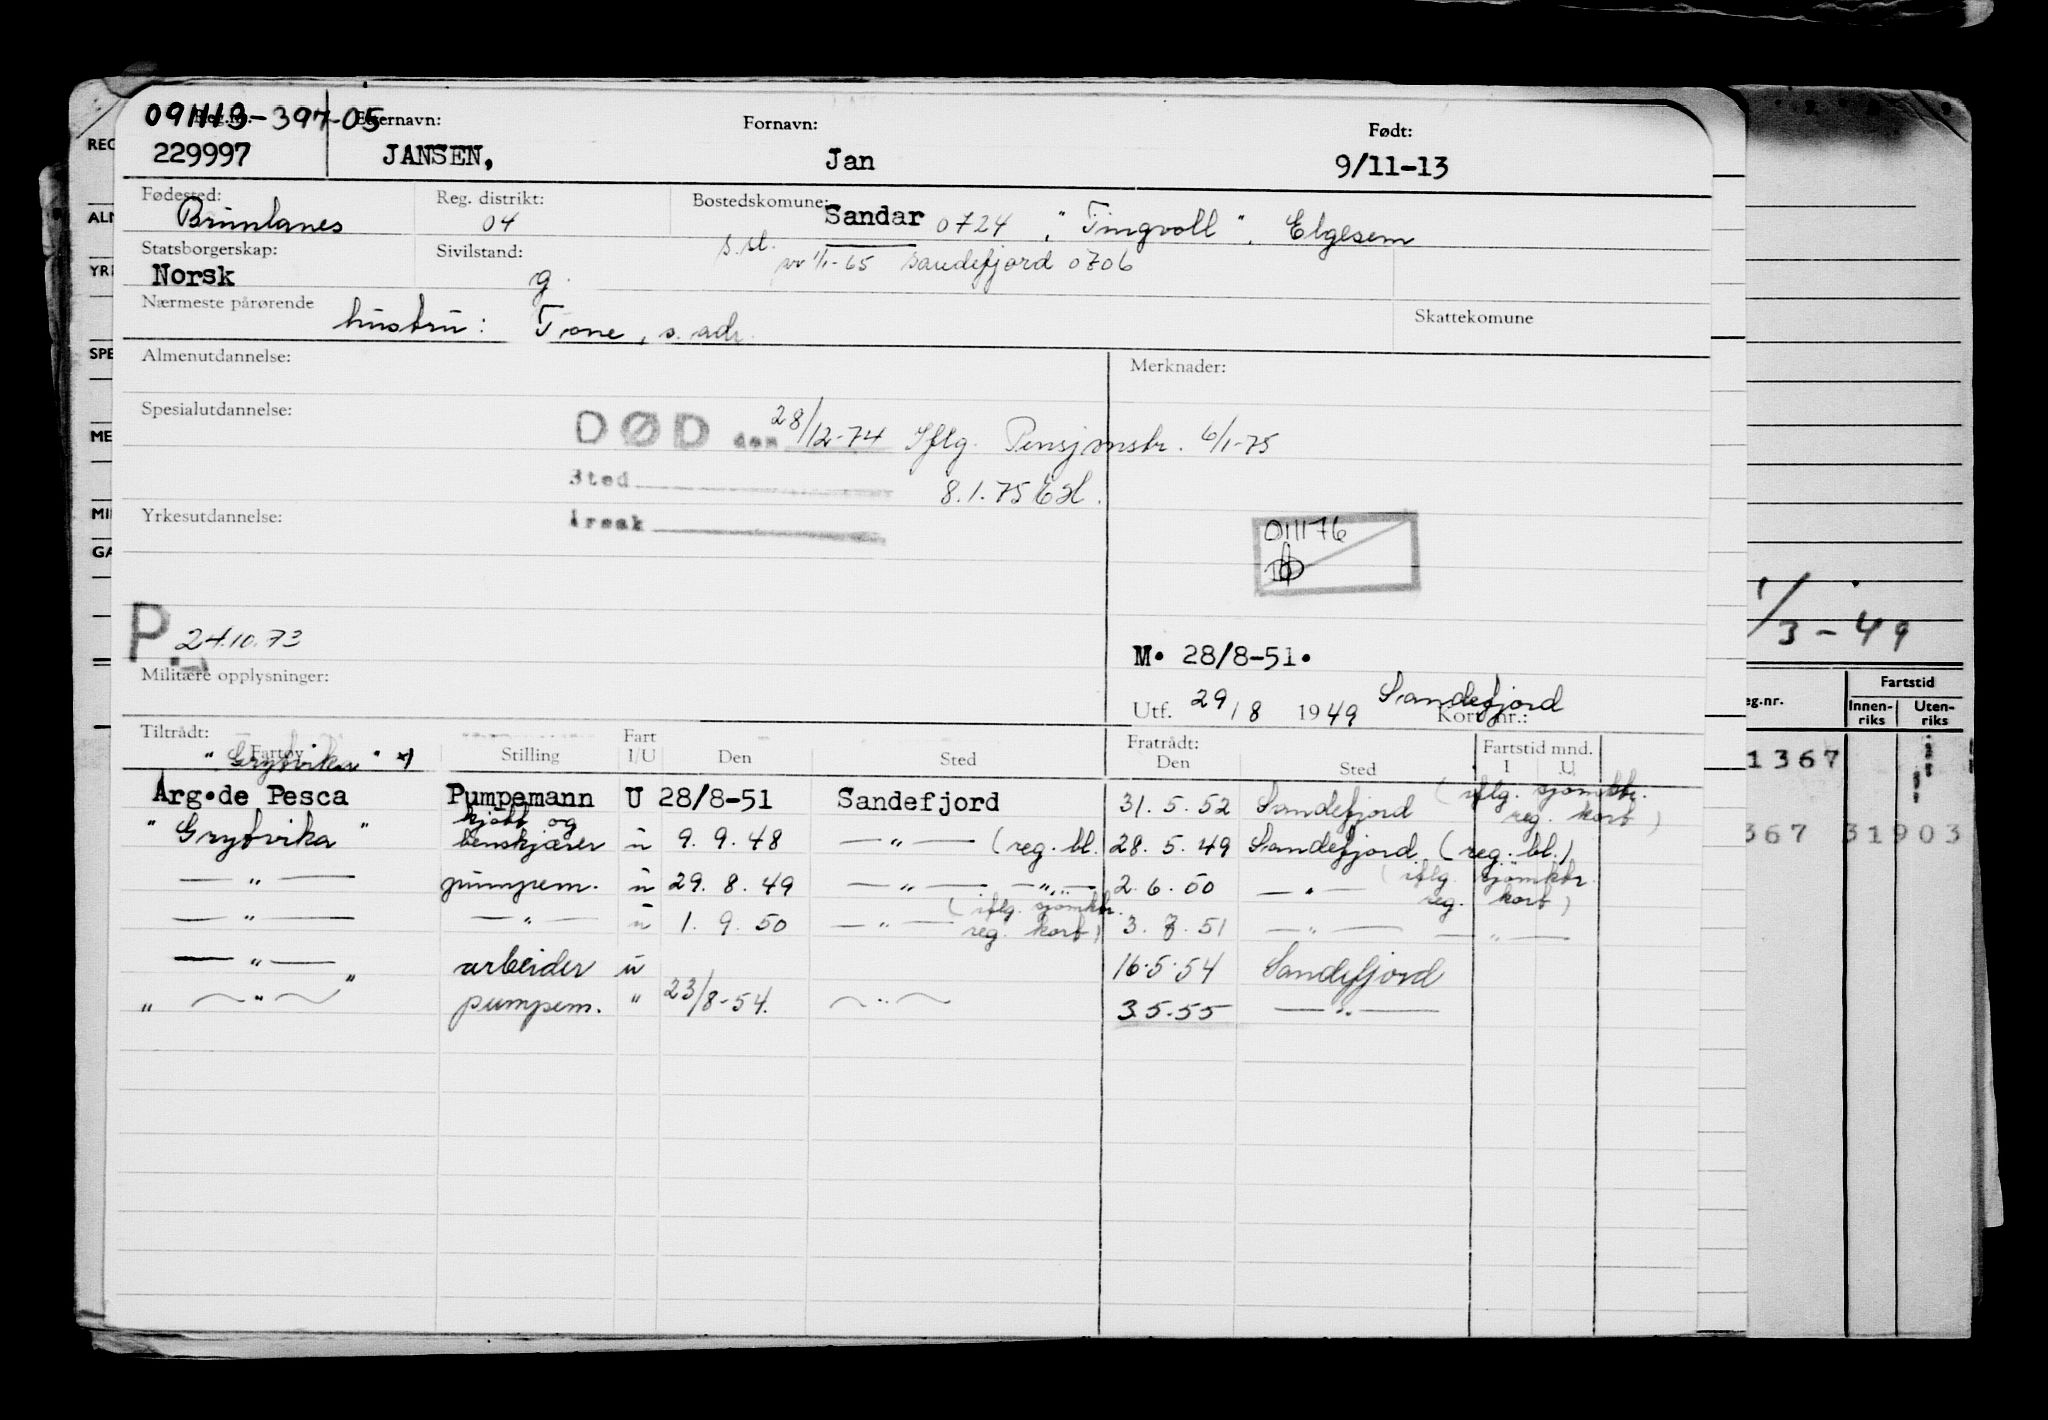 091113-397-05
Reg.nr. Etternavn: Fornavn: Født:
229997 JANSEN, Jan 9/11-13
Fødested: Reg. distrikt: Bostedskomune:
Brunlanes 04 Sandar 0724, "Tingvoll", Elgesem
Statsborgerskap: Sivilstand: s.st.
Norsk g. pr 1/1-65 Sandefjord 0706
Nærmeste pårørende Skattekomune
hustru: Tone, s. adr.
Almenutdannelse: Merknader:
Spesialutdannelse:
DØD den 28/12-74 Iflg. Pensjonstr. 6/1-75
Sted 8.1.75
Yrkesutdannelse: Årsak
011176
P. 24.10.73
M. 28/8-51.
Militære opplysninger:
Utf. 29/8 1949 Sandefjord Kort nr.:
Tiltrådt: Fart Fratrådt: Fartstid mnd.
Fartøy Stilling I/U Den Sted Den Sted I U
"Grytvika" *)
Arg.de Pesca Pumpemann U 28/8-51 Sandefjord 31.5.52 Sandefjord (iflg. sjømktr. reg. kort)
"Grytvika" kjøtt og benskjærer u 9.9.48 —"— (reg. bl.) 28.5.49 Sandefjord (reg. bl.)
—"— pumpem. u 29.8.49 —"— —"— 2.6.50 —"— (iflg. sjømktr. reg. kort)
—"— —"— u 1.9.50 —"— (iflg. sjømktr. reg. kort) 3.7.51 —"— —"—
—"— arbeider u 16.5.54 Sandefjord
" —"— " pumpem. " 23/8-54. —"— 3.5.55 —"—
REG
ALM
YRK
SPE
ME
MI
GA
1/3-49
eg.nr. Fartstid
Innen-riks Uten-riks
1367
367 31903